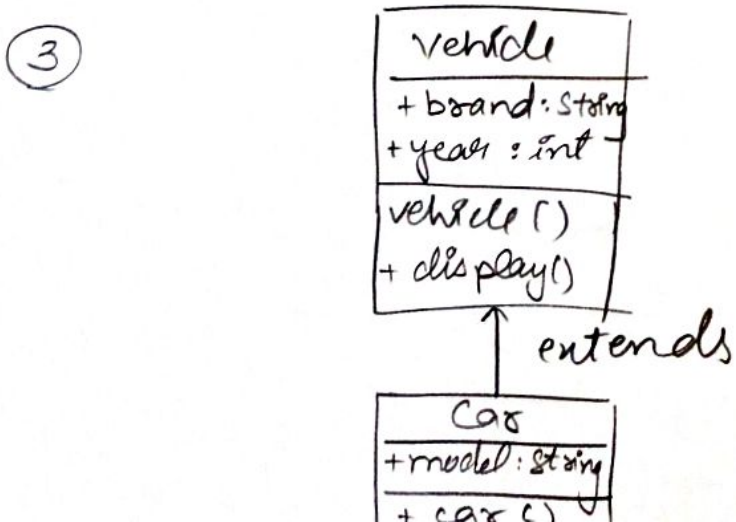 3
vehicle
+ brand: String
+ year : int
vehicle ()
+ display()
extends
Car
+ model: String
+ car ()